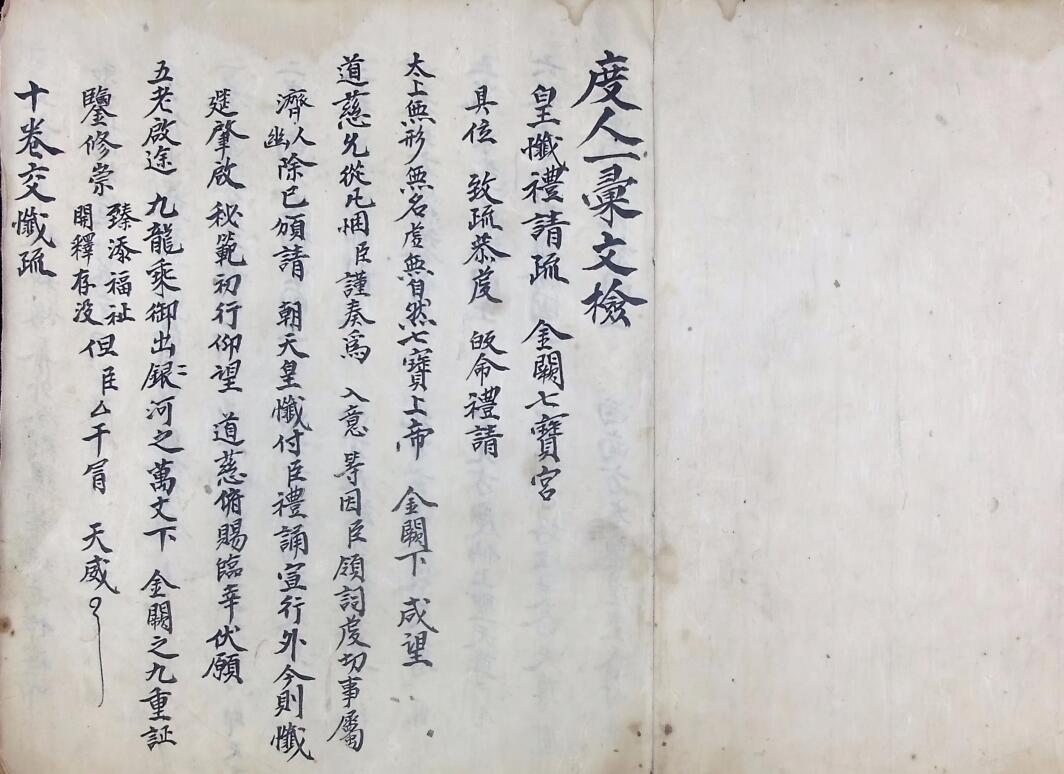 度人一彙文檢
皇懺禮請疏 金闕七寶宮
具位 致疏恭度 皈命禮請
太上無形無名虛無自然七寶上帝 金闕下 咸望
道慈允從凡悃臣謹奏為 入意 等因臣領詞度切事屬
濟人幽除已頒請 朝天皇懺付臣禮誦宣行外今則懺
筵肇啟秘範初行仰望 道慈俯賜臨幸伏願
五老啟途 九龍乘御出銀河之萬丈下 金闕之九重証
鑒修崇 臻添福祉 開釋存没 但臣厶干冐 天威
十卷交懺疏